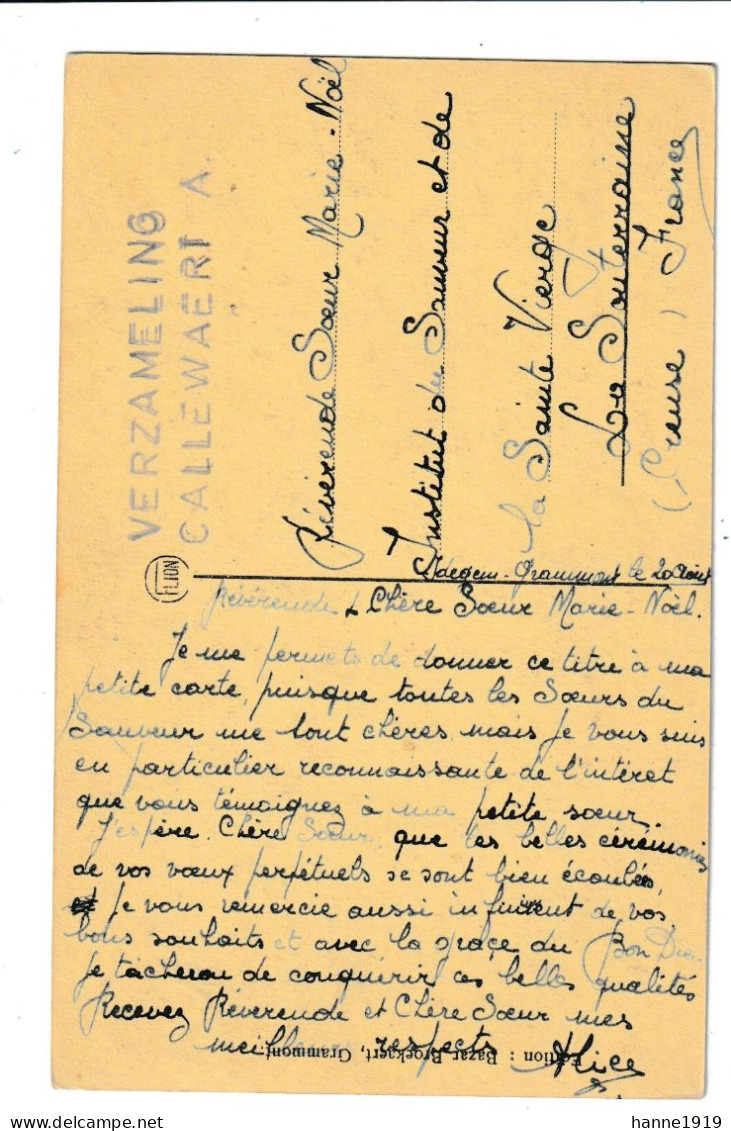 VERZAMELING
CALLEWAERT A.
Révérende Sœur Marie-Noël
Institut du Sauveur et de
la Sainte Vierge
La Souterraine
(Creuse) France
ELJON
Idegem-Grammont le 20 Août
Révérende & Chère Sœur Marie-Noël.
Je me permets de donner ce titre à ma
petite carte, puisque toutes les Sœurs du
Sauveur me sont chères, mais je vous suis
en particulier reconnaissante de l'intéret
que vous témoignez à ma petite sœur.
J'espère, Chère Sœur, que les belles cérémonies
de vos vœux perpétuels se sont bien écoulées,
et je vous remercie aussi infiniment de vos
bons souhaits et avec la grâce du Bon Dieu
je tâcherai de conquérir ces belles qualités
Recevez Révérende et Chère Sœur mes
meilleurs respects Alice
Edition : Bazar Broekaert, Grammont
hanne1919